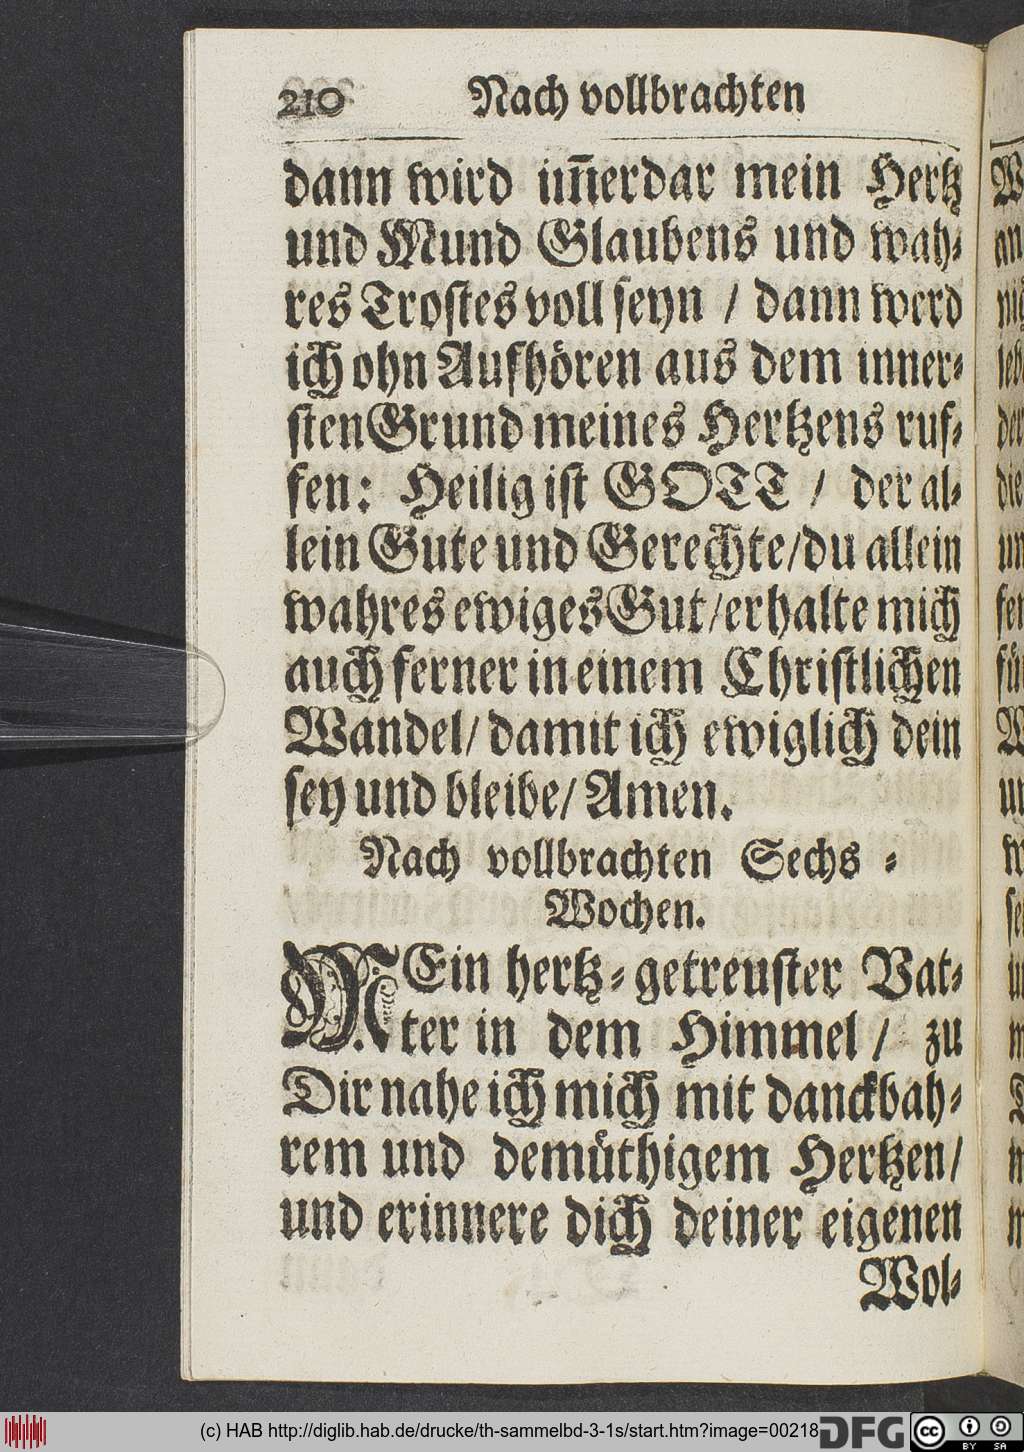 210 Nach vollbrachten
dann wird im̅erdar mein Hertz
und Mund Glaubens und wah⸗
res Trostes voll seyn / dann werd
ich ohn Aufhören aus dem inner⸗
sten Grund meines Hertzens ruf⸗
fen: Heilig ist GOTT / der al⸗
lein Gute und Gerechte/du allein
wahres ewiges Gut/erhalte mich
auch ferner in einem Christlichen
Wandel/ damit ich ewiglich dein
sey und bleibe/ Amen.
Nach vollbrachten Sechs⸗
Wochen.
MEin hertz⸗getreuster Vat⸗
ter in dem Himmel / zu
Dir nahe ich mich mit danckbah⸗
rem und demüthigem Hertzen/
und erinnere dich deiner eigenen
Wol⸗
(c) HAB http://diglib.hab.de/drucke/th-sammelbd-3-1s/start.htm?image=00218
DFG
cc BY SA